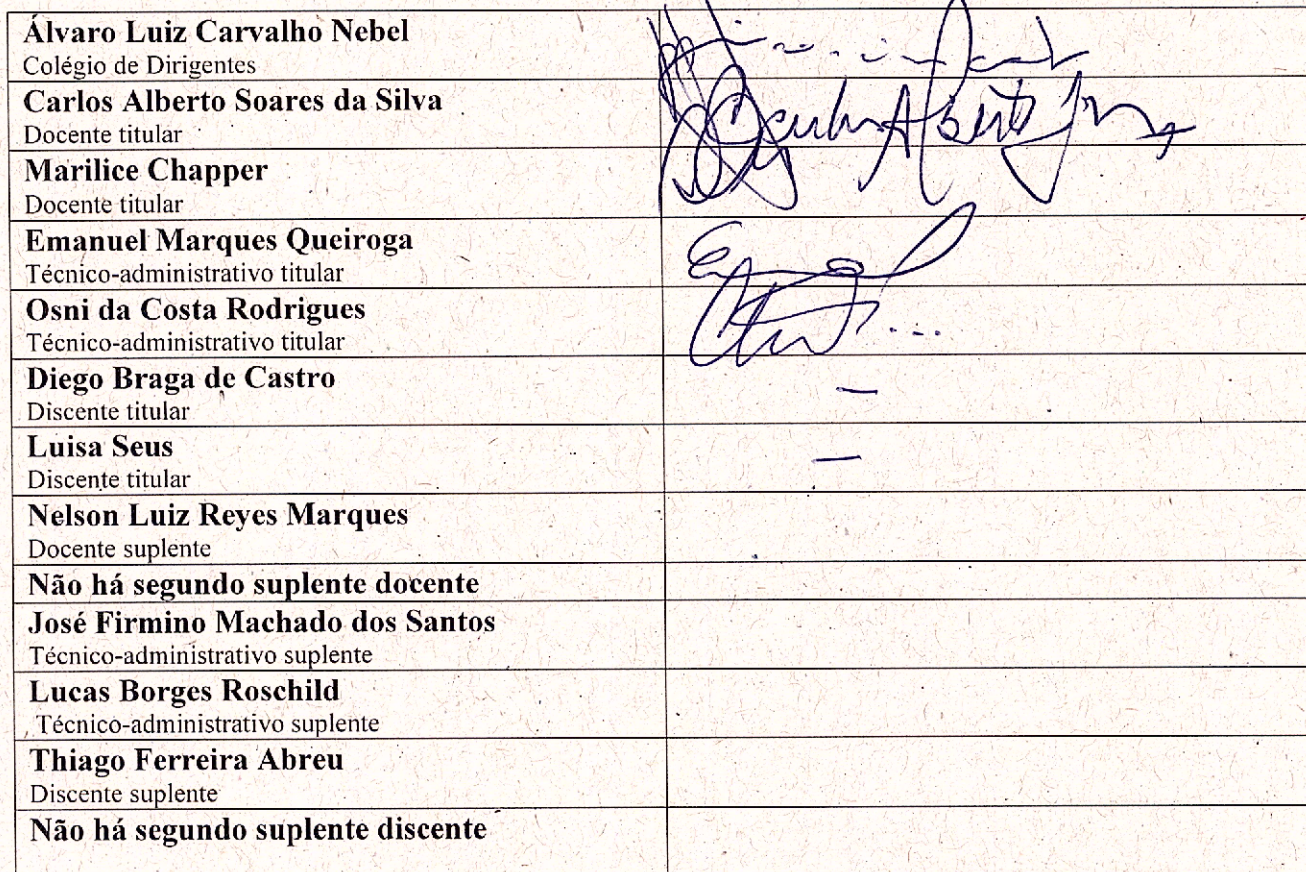 Álvaro Luiz Carvalho Nebel
Colégio de Dirigentes
Carlos Alberto Soares da Silva
Docente titular
Carlos Alberto
Marilice Chapper
Docente titular
Emanuel Marques Queiroga
Técnico-administrativo titular
Osni da Costa Rodrigues
Técnico-administrativo titular
Diego Braga de Castro
Discente titular
—
Luisa Seus
Discente titular
—
Nelson Luiz Reyes Marques
Docente suplente
Não há segundo suplente docente
José Firmino Machado dos Santos
Técnico-administrativo suplente
Lucas Borges Roschild
Técnico-administrativo suplente
Thiago Ferreira Abreu
Discente suplente
Não há segundo suplente discente